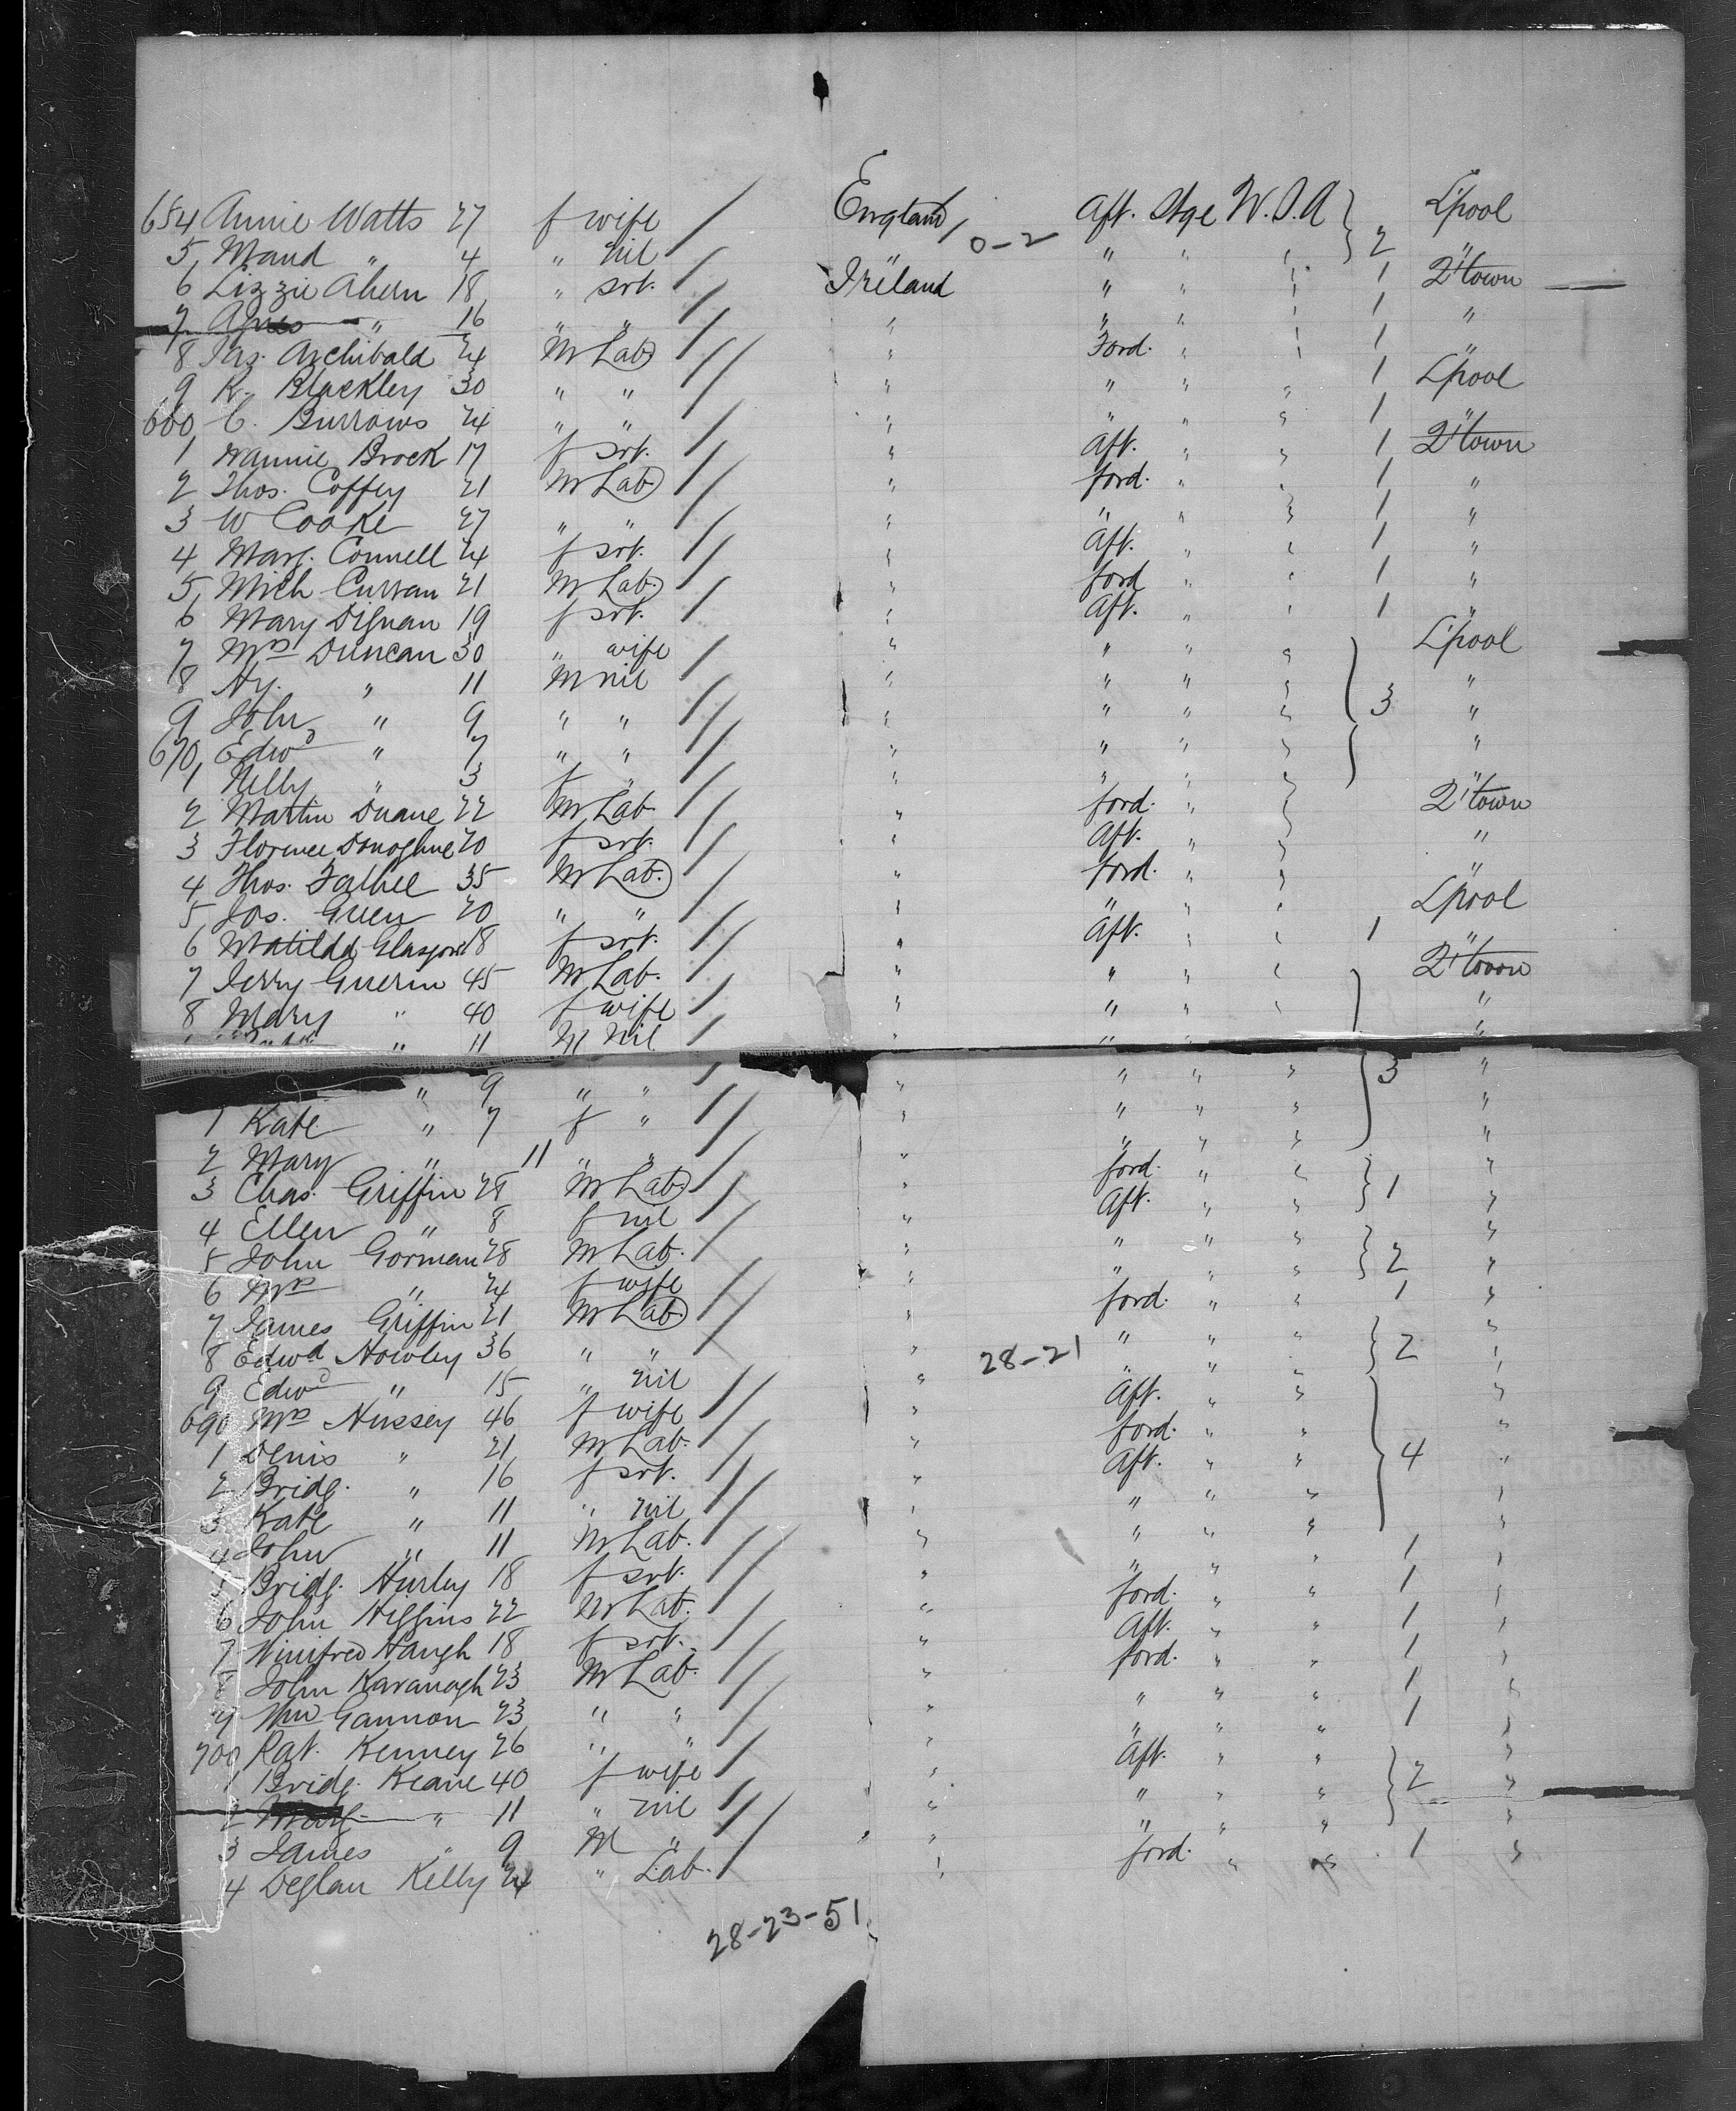 654 Annie Watts 27 f wife / England / 0-2 Aft. Stge U.S.A } 2 L'pool
5 Maud " 4 " nil / " " " " "
6 Lizzie Ahern 18 " svt. / Ireland " " " 1 Q'town
7 Agnes " 16 " " / " " " " 1 "
8 Jas. Archibald 24 M Lab / " Ford. " " 1 "
9 R. Blackley 30 " " / " " " " 1 L'pool
660 C. Burrows 24 " " / " " " " 1 "
1 Nannie Brock 17 f svt. / " Aft. " " 1 Q'town
2 Thos. Coffey 21 M Lab / " ford. " " 1 "
3 W Cooke 27 " " / " " " " 1 "
4 Marg. Connell 24 f svt. / " Aft. " " 1 "
5 Mich Curran 21 M Lab. / " ford " " 1 "
6 Mary Dignan 19 f svt. / " Aft. " " 1 "
7 Mrs Duncan 30 " wife / " " " " L'pool
8 Hy. " 11 M nil / " " " " "
9 John " 9 " " / " " " " 3 "
670 Edwd " 7 " " / " " " " "
1 Nelly " 3 f " / " " " " "
2 Martin Duane 22 M Lab. / " ford. " " Q'town
3 Florence Donoghue 20 f svt. / " Aft. " " "
4 Thos. 35 M Lab. / " ford. " " "
5 Jos. Green 20 " " / " " " " L'pool
6 Matilda Glasgow 18 f svt. / " Aft. " " 1 "
7 Jerry Guerin 45 M Lab. / " " " " Q'town
8 Mary " 40 f wife / " " " " "
" 11 M Nil / " " " "
" 9 " " / " " " " 3 "
1 Kate " 7 f " / " " " " "
2 Mary " 11 " " / " " " " "
3 Chas. Griffin 28 M Lab. / " ford. " " "
4 Ellen " 8 f nil / " Aft. " " } 1 "
5 John Gorman 28 M Lab. / " " " " "
6 Mrs " 24 f wife / " " " " } 2 "
7 James Griffin 21 M Lab. / " ford. " " 1 "
8 Edwd Howley 36 " " / " 28-21 " " " } 2 "
9 Edwd " 15 " nil / " " " " "
690 Mrs Hussey 46 f wife / " Aft. " " "
1 Denis " 21 M Lab. / " ford. " " "
2 Bridg. " 16 f svt. / " Aft. " " 4 "
3 Kate " 11 " nil / " " " " "
4 John " 11 M Lab. / " " " " "
5 Bridg. Hurley 18 f svt. / " " " " 1 "
6 John Higgins 22 M Lab. / " ford. " " 1 "
7 Winifred Haugh 18 f svt. / " Aft. " " 1 "
8 John Kavanagh 23 M Lab. / " ford. " " 1 "
9 Wm Gannon 23 " " / " " " " 1 "
700 Pat. Kenney 26 " " / " " " " 1 "
1 Bridg. Keane 40 f wife / " Aft. " " "
2 Marg " 11 " nil / " " " " } 2 "
3 James " 9 M " / " " " " "
4 Deglan Kelly 24 " Lab. / " ford. " " 1 "
28-23-51